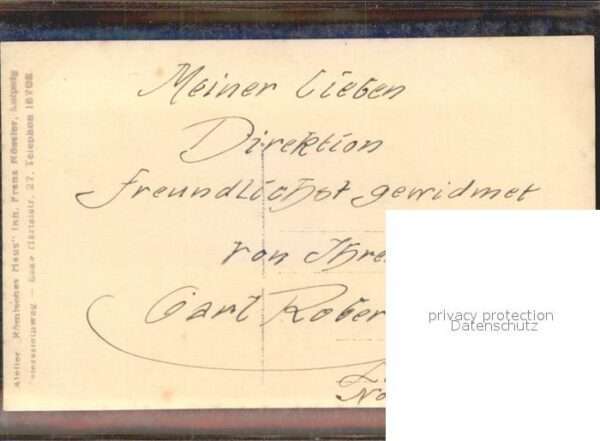 Meiner lieben
Direktion
freundlichst gewidmet
von Ihre
Carl Rober
privacy protection
Datenschutz
Atelier „Römisches Haus“ Inh. Franz Rössler, Leipzig
27. Telephon 18708.